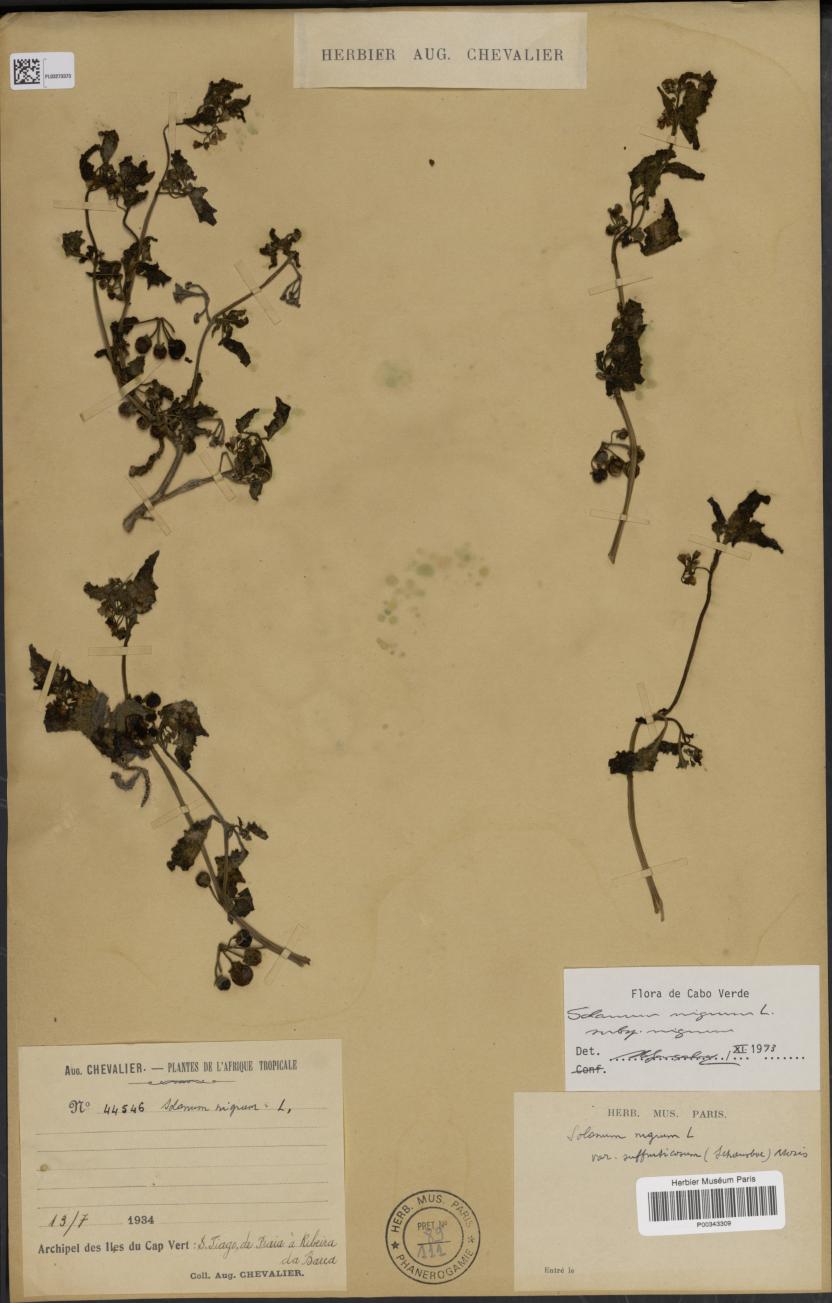 PL00273373
HERBIER AUG. CHEVALIER
Flora de Cabo Verde
Solanum nigrum L.
subsp. nigrum
Det. XI 1973
Conf.
Aug. CHEVALIER. — PLANTES DE L'AFRIQUE TROPICALE
N° 44546 Solanum nigrum L.
13/7 1934
Archipel des Iles du Cap Vert : S. Tiago, de Praia à Ribeira
da Barca
Coll. Aug. CHEVALIER.
HERB. MUS. PARIS.
PRET N°
89
111
PHANEROGAMIE
HERB. MUS. PARIS.
Solanum nigrum L
var. suffruticosum (Schousboe) Moris
Herbier Muséum Paris
P00343309
Entré le